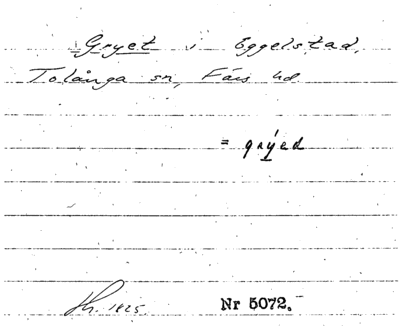 Gryet i Eggelstad,
Tolånga sn, Färs hd
= grýed
Nr 5072.